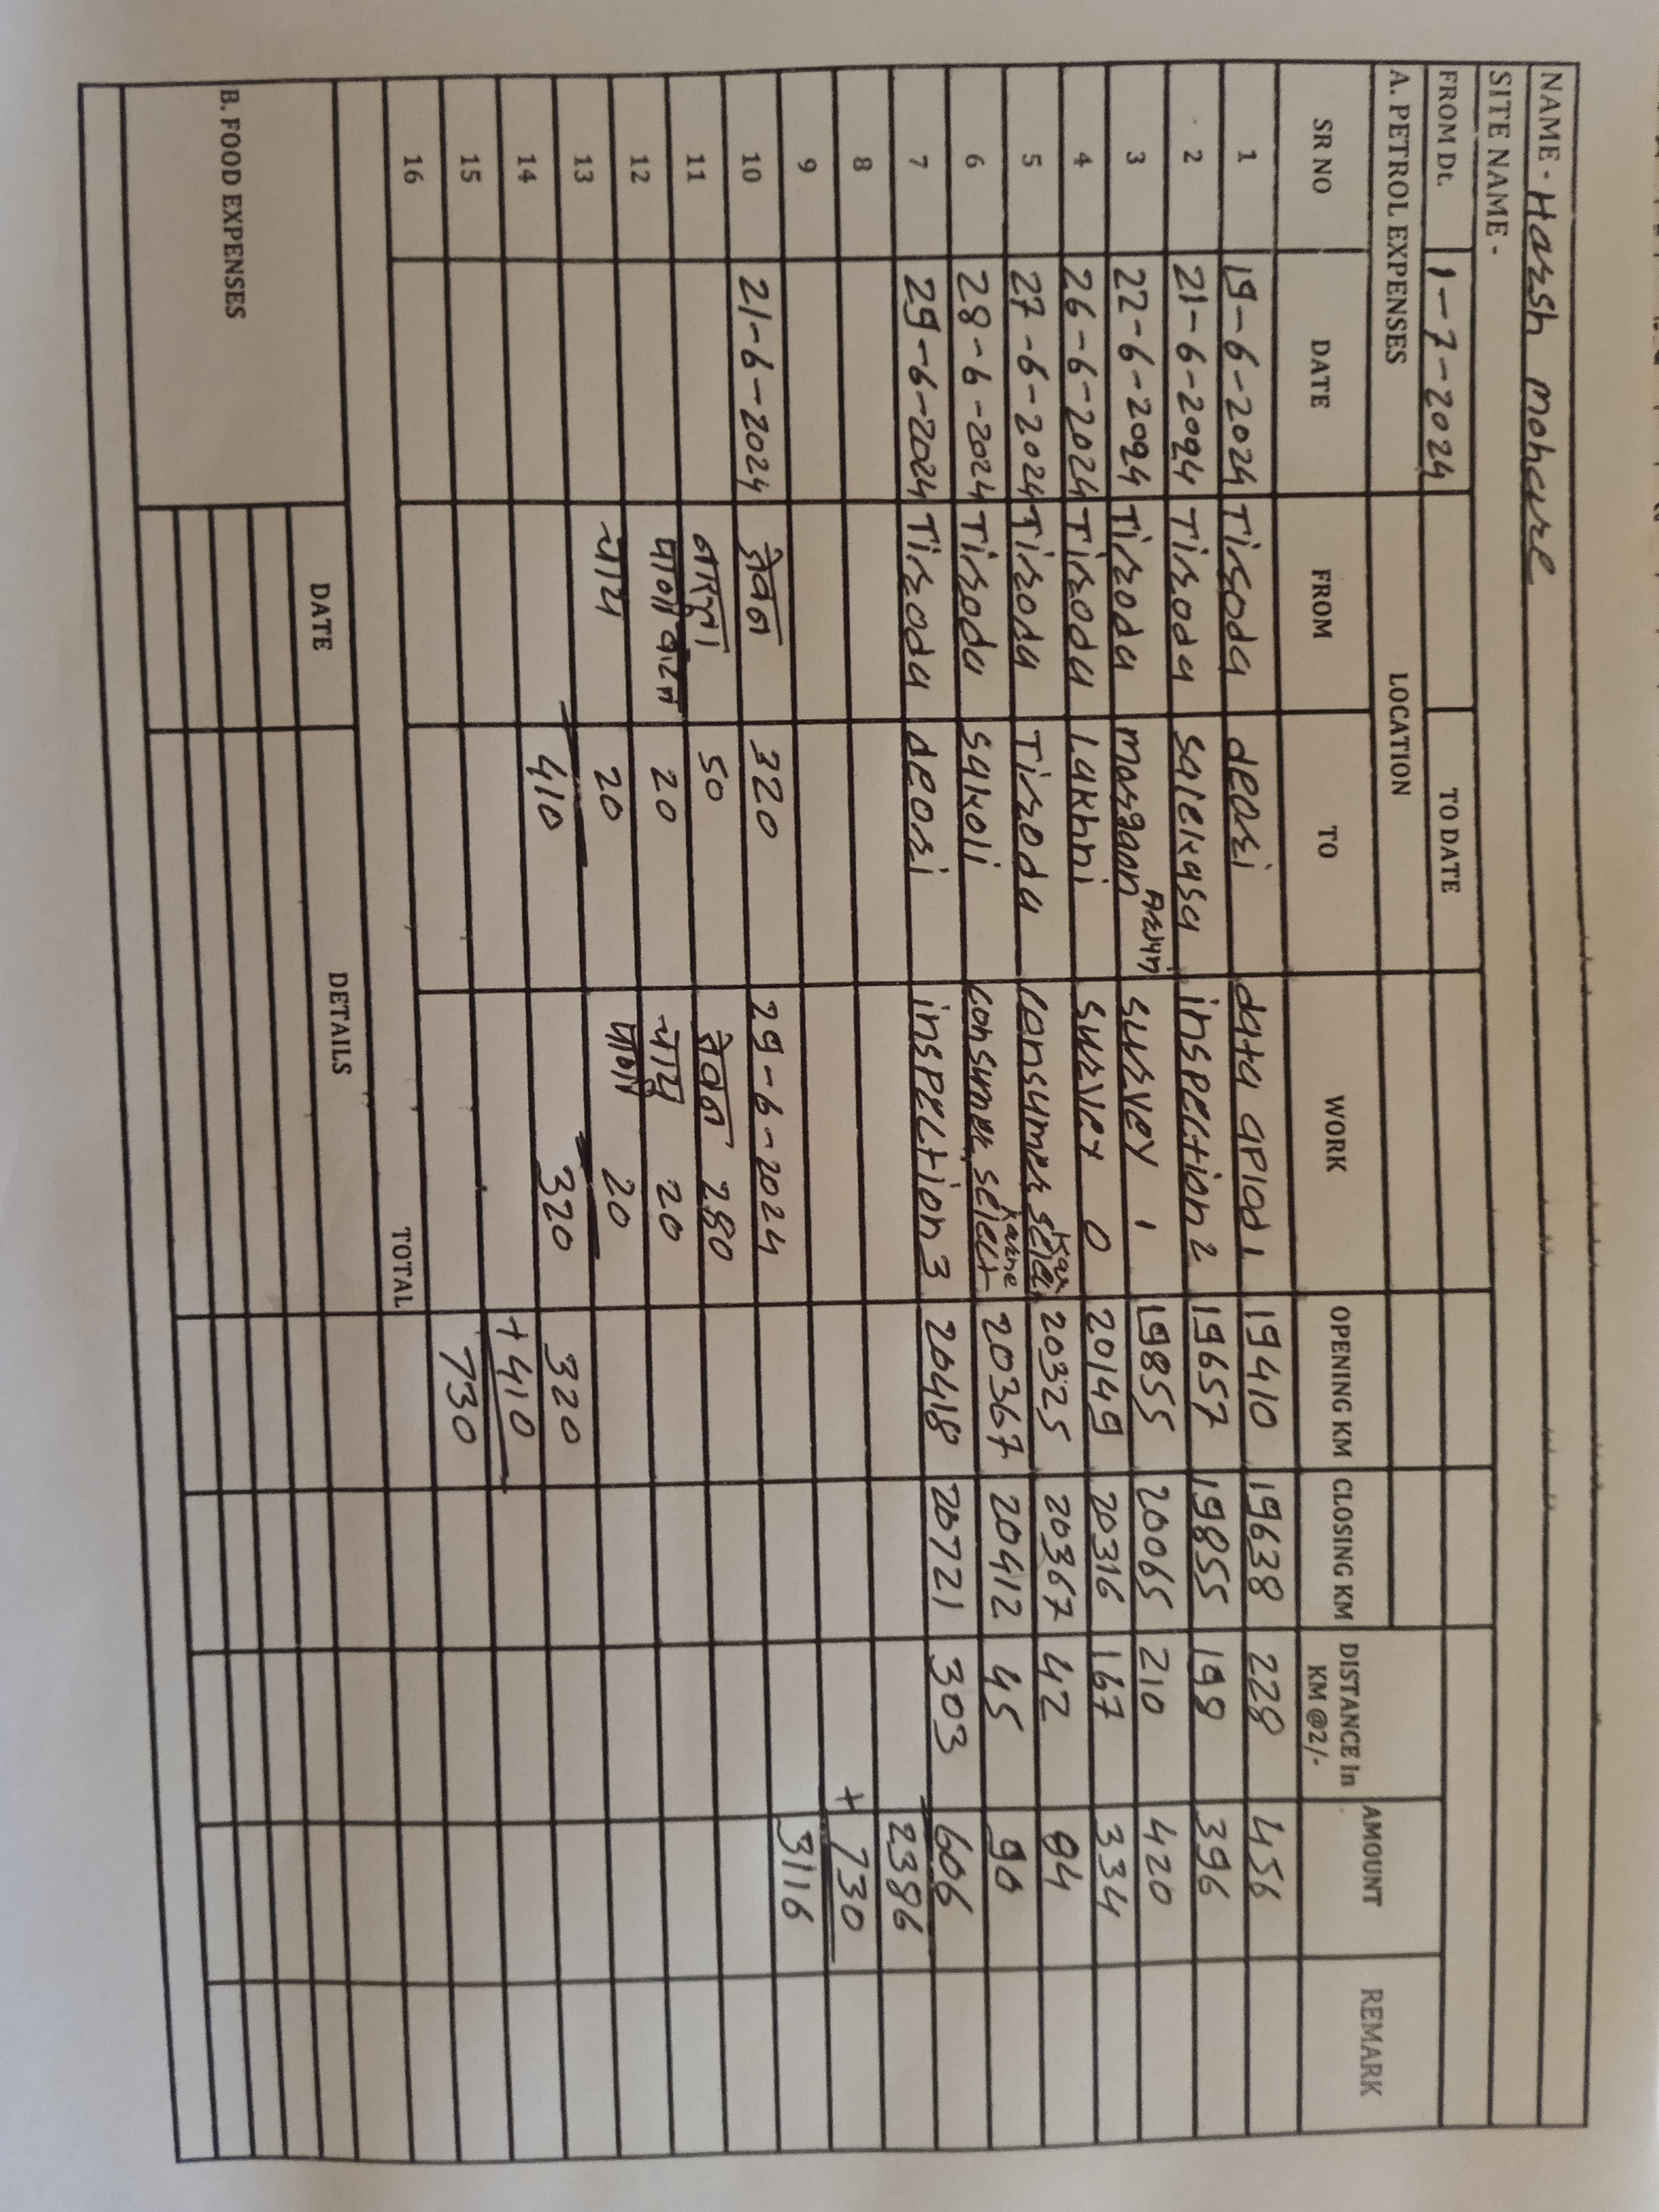 NAME - Harsh mohare
SITE NAME -
FROM Dt. 1-7-2024 TO DATE
A. PETROL EXPENSES LOCATION
SR NO DATE FROM TO WORK OPENING KM CLOSING KM DISTANCE In KM @2/- AMOUNT REMARK
1 19-6-2024 Tiroda deori data aplod 1 19410 19638 228 456
2 21-6-2024 Tiroda salekasa inspection 2 19657 19855 198 396
3 22-6-2024 Tiroda morgaon survey 1 19855 20065 210 420
4 26-6-2024 Tiroda Lakhni survey 0 20149 20316 167 334
5 27-6-2024 Tiroda Tiroda consumer 20325 20367 42 84
6 28-6-2024 Tiroda sakoli consumer select 20367 20412 45 90
7 29-6-2024 Tiroda deori inspection 3 20418 20721 303 606
8 2386
9 + 730
3116
10 21-6-2024 जेवन 320 29-6-2024
11 नास्ता 50 जेवन 280
12 पाणी बॉटल 20 चाय 20
13 चाय 20 पाणी 20
14 410 320 320
15 + 410
16 730
TOTAL
B. FOOD EXPENSES DATE DETAILS